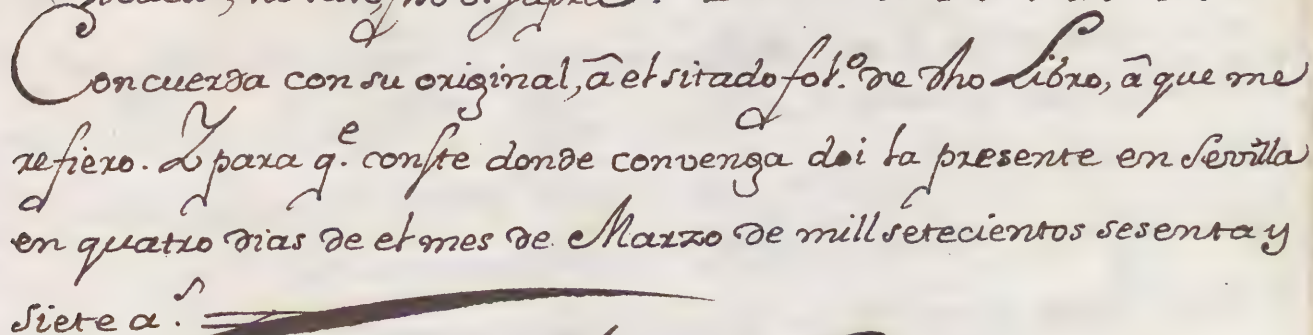 Concuerda con su original, â el sitado fol.º de dho Libro, â que me
refiero. Y para q.e conste donde convenga doi la presente en Sevilla
en quatro dias de el mes de Marzo de mill setecientos sesenta y
siete a.s